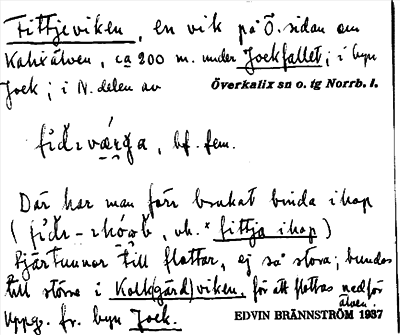 Fittjeviken, en vik på Ö. sidan om
Kalixälven, ca 200 m. under Jockfallet; i byn
Jock; i N. delen av Överkalix sn o. tg Norrb. l.
bf. fem.
Där har man förr brukat binda ihop
( vb. * fittja ihop)
tjärtunnor till flottar, ej så stora; bundos
till större i Kolk(gård)viken, för att flottas nedför
älven.
Uppg. fr. byn Jock. EDVIN BRÄNNSTRÖM 1937